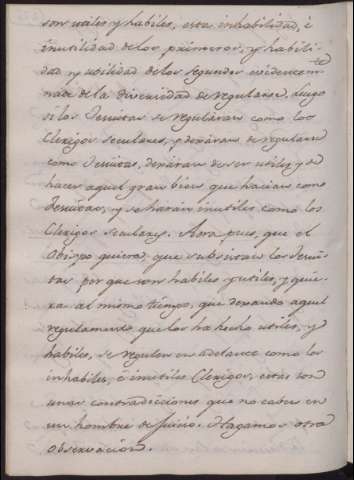 son utiles y habiles, esta inhabilidad, è
inutilidad de los primeros, y habili-
dad y utilidad de los segundos evidentem.te
nace de la diversidad de regularse, luego
si los Jesuitas se regularan como los
Clerigos seculares, y dexàran de regularse
como Jesuitas, dexàran de ser utiles y de
hacer aquel gran bien que hacian como
Jesuitas, y se haràn inutiles como los
Clerigos seculares. Aora pues, que el
Obispo quiera, que subsistan los Jesui-
tas por que son habiles y utiles, y quie-
ra al mismo tiempo, que dexando aquel
reglamento que los ha hecho utiles, y
habiles, se regulen en adelante como los
inhabiles, è inutiles Clerigos, estas son
unas contradicciones que no caben en
un hombre de juicio. Hagamos otra
observacion.